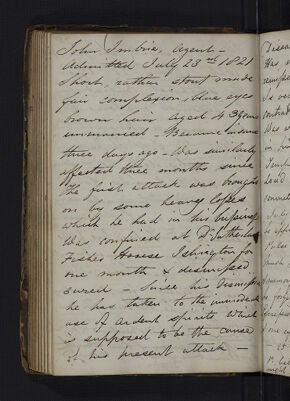 John Imbrie, Agent –
Admitted July 23rd 1821
Short, rather stout made
fair complexion, blue eyes
brown hair aged 43 years
unmarried – Became insane
three days ago – Was similarly
affected three months since
the first attack was brought
on by some heavy losses
which he had in his business
Was confined at Dr Sutherland
Fisher House Islington for
one month & dismissed
cured – Since his dismissal
he has taken to the immoderate
use of Ardent spirits which
is supposed to be the cause
of his present attack –